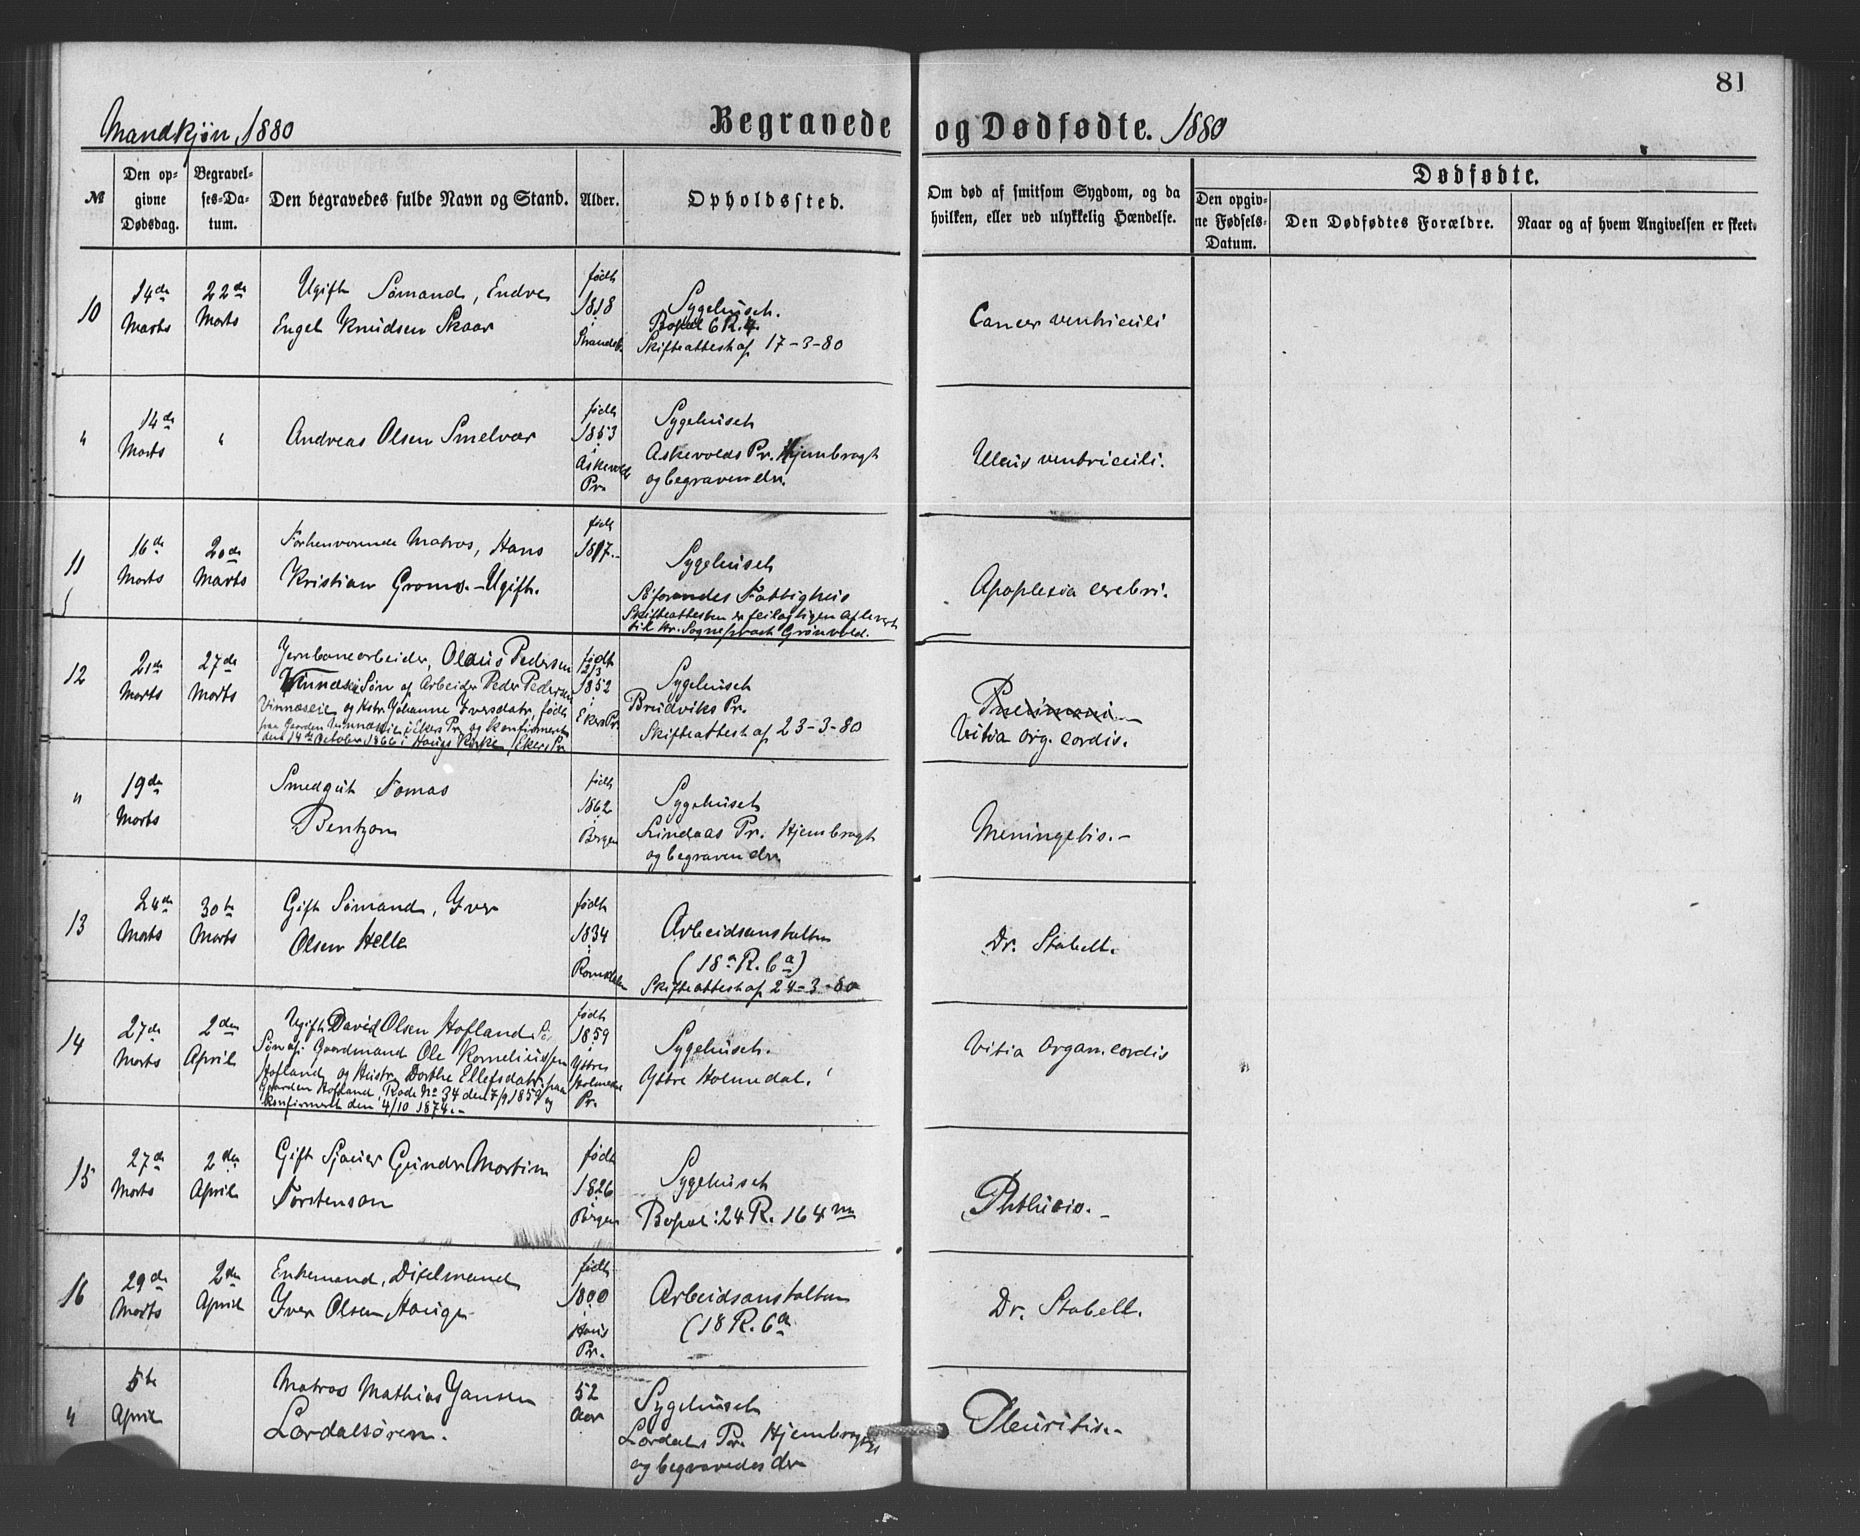 81
Mandkjøn, 1880
Begravede og Dødfødte. 1880
№
Den op-
givne
Dødsdag.
Begravel-
ses-Da-
tum.
Den begravedes fulde Navn og Stand.
Alder.
Opholdssted.
Om død af smitsom Sygdom, og da
hvilken, eller ved ulykkelig Hændelse.
Dødfødte.
Den opgiv-
ne Fødsels-
Datum.
Den Dødfødtes Forældre.
Naar og af hvem Angivelsen er skeet.
10
14de
Marts
22de
Marts
Ugift Sømand, Endve
Engel Knudsen Skaar
født
1818
i
Sygehuset.
Bopæl 6 R. 4.
Skifteattest af 17-3-80
Cancer ventriculi
"
14de
Marts
"
Andreas Olsen Smelvær
født
1853
i
Askevolds
Pr.
Sygehuset
Askevolds Pr. Hjembragt
og begraven der.
Ulcus ventriculi.
11
16de
Marts
20de
Marts
Forhenværende Matros, Hans
Kristian Groms.-Ugift.
født
1817.-
Sygehuset
Søforendes Fattighus
Skifteattesten er feilagtigen afleveret
til Hr. Sogneprest Grønvold.
Apoplexia cerebri.
12
21de
Marts
27de
Marts
Jernbanearbeider, Olaus Pedersen
Søn af Arbeider Peder Pedersen
Vinnæseie og Hstr. Johanne Iversdatr. født
paa Gaarden Vinnæseie i Ekers Pr. og konfirmeret
den 14de October 1866 i Haugs Kirke, Ekers Pr.
født
2/3
1852
i
Ekers Pr.
Sygehuset
Bruvviks Pr.
Skifteattest af 23-3-80
Pneumoni.-
Vitia org. cordis.
"
19de
Marts
Smedgut Tomas
Bentzon
født
1862
i
Bergen
Sygehuset
Lindaas Pr. Hjembragt
og begraven der.
Meningitis.-
13
24de
Marts
30te
Marts
Gift Sømand, Iver
Olsen Helle
født
1834
i
Romsdalen
Arbeidsanstalten
(18a R. 6a)
Skifteattest af 24-3-80
Dr. Stabell.
14
27de
Marts
2den
April
Ugift David Olsen Hofland
Søn af Gaardmand Ole Korneliussen
Hofland og Hustr. Dorthe Ellefsdatr. paa
Gaarden Hofland, Rode No 34 den 7/9 1859 og
konfirmeret den 4/10 1874.-
født
1859
i
Yttre
Holmedal
Pr.
Sygehuset.
Yttre Holmedal.
Vitia organ. cordis
15
27de
Marts
2den
April
Gift Sjouer Gunder Martin
Torstenson
født
1826
i
Bergen
Sygehuset
Bopæl: 24 R. 164 m
Phthisis.-
16
29de
Marts
2den
April
Enkemand, Dixelmand
Iver Olsen Hauge
født
1800
i
Haus
Pr.
Arbeidsanstalten
(18 R. 6a
Dr. Stabell.
"
5te
April
Matros Mathias Jansen
Lærdalsøren.
52
Aar
Sygehuset
Lærdals Pr. Hjembragt
og begravedes der
Pleuritis.-